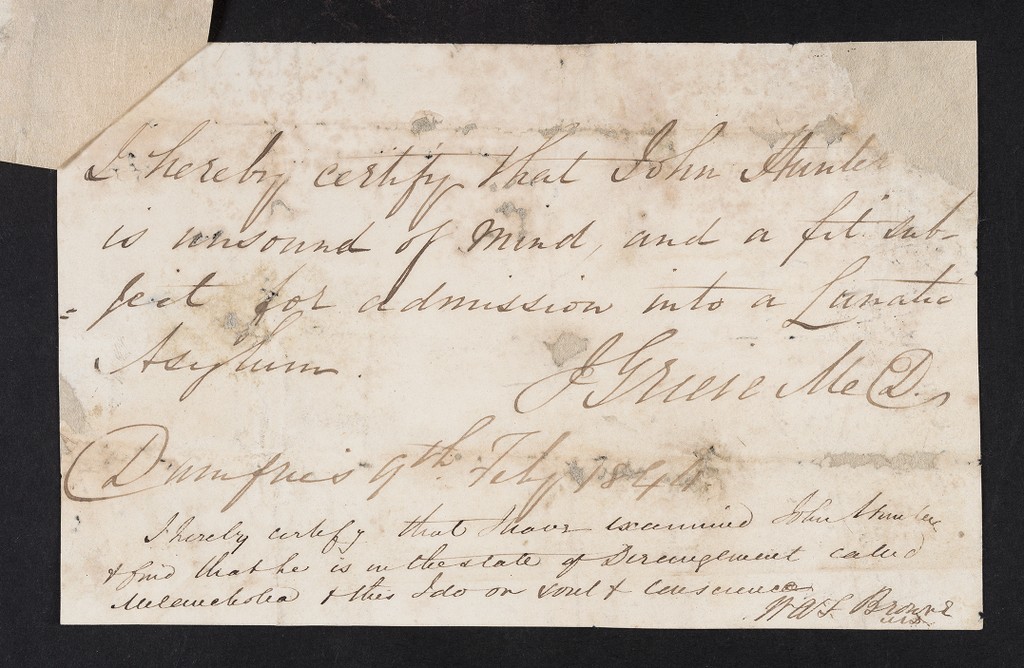 I hereby certify that John Hunter
is unsound of Mind, and a fit sub-
ject for admission into a Lunatic
Asylum.
J Grieve M.D.
Dumfries 9th. Feby 1844.
I hereby certify that I have examined John Hunter
& find that he is in the state of Derangement called
Melancholia & this I do on soul & conscience
W A F Browne